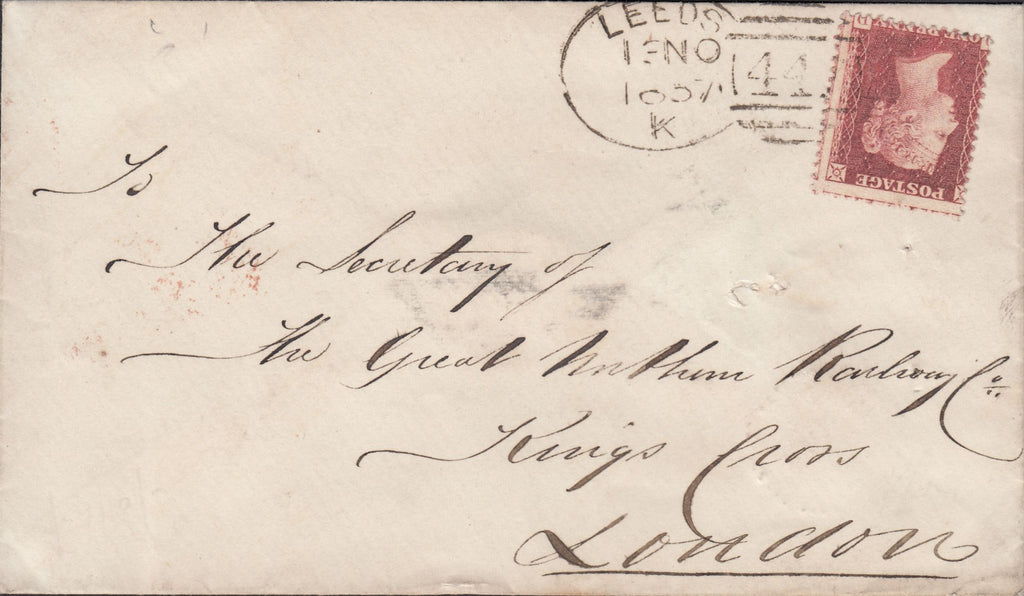 LEEDS
NO
1857
K
44
POSTAGE
To
The Secretary of
The Great Northern Railway Co
Kings Cross
London